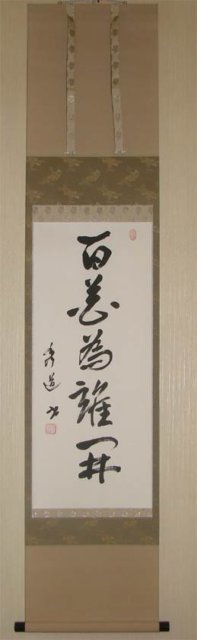 百花為誰開
道 書